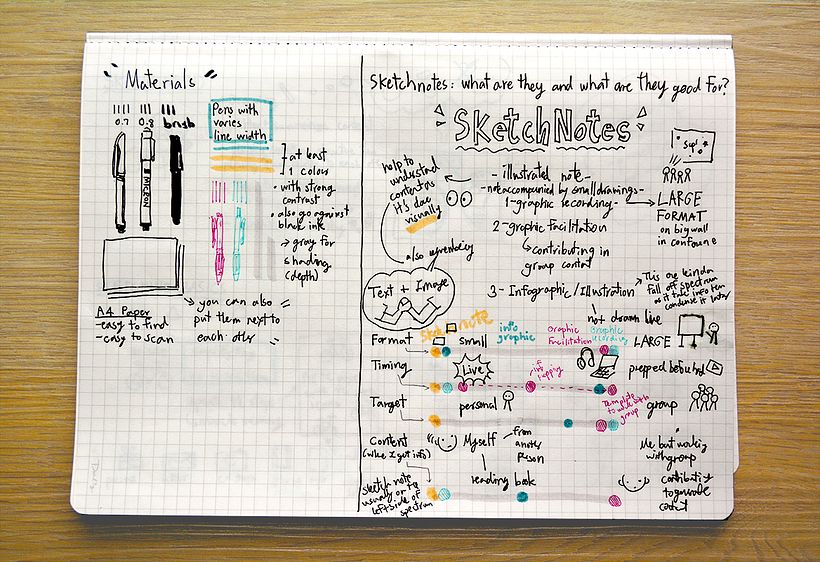 Materials
0.7 0.8 brush
MICRON
Pens with
varies
line width
at least
1 colour
• with strong
contrast
• also go against
black ink
→ gray for
shading
(depth)
A4 Paper
-easy to find
-easy to scan
→ you can also
put them next to
each other
Sketchnotes: what are they and what are they good for?
SKetchNotes
help to
understand
content as
it's done
visually
- illustrated note -
-not accompanied by small drawings-
1-graphic recording
Sup!
→ LARGE
FORMAT
on big wall
in
2-graphic facilitation
↳ contributing in
group content
also
Text + Image
3- Infographic/Illustration
→ This one kinda
fall off spectrum
as it take info then
condense it
↳ not drawn live
Format
Sketchnote
small
info
graphic
Graphic
Facilitation
Graphic
recording
LARGE
Timing
Live
if
prepped
Target
personal
Template
to work with
group
group
Content
Myself
from
another
Person
Me but working
with group
reading book
sketch note
usually on the
left side of
spectrum
to
content